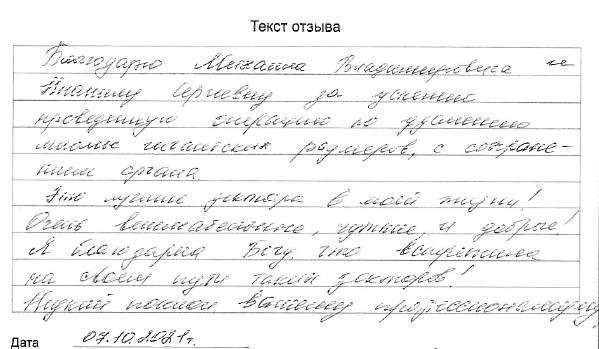 Текст отзыва
Благодарю Михаила Владимировича и
Сергеевну за успешно
проведенную операцию по удалению
миомы гигантских размеров, с сохране-
нием органа
Это лучшие доктора в моей жизни!
Очень внимательные, чуткие, и добрые!
Я благодарна Богу, что встретила
на своем пути таких докторов!
Низкий поклон вашему профессионализму
Дата 07.10.2021г.